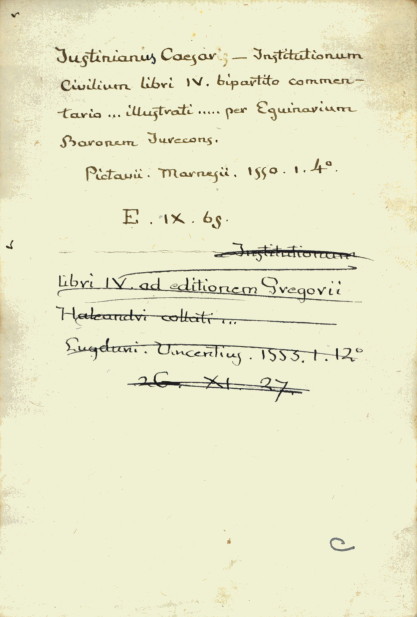 Justinianus Caesar — Institutionum
Civilium libri IV. bipartito commen-
tario ... illustrati ..... per Eguinarium
Baronem Jurecons.
Pictavii. Marnesii. 1550. 1. 4°.
E. IX. 65.
Institutionum
libri IV. ad editionem Gregorii
Haleandri collati ...
Lugduni. Vincentius. 1553. 1. 12°
26. XI. 27.
C